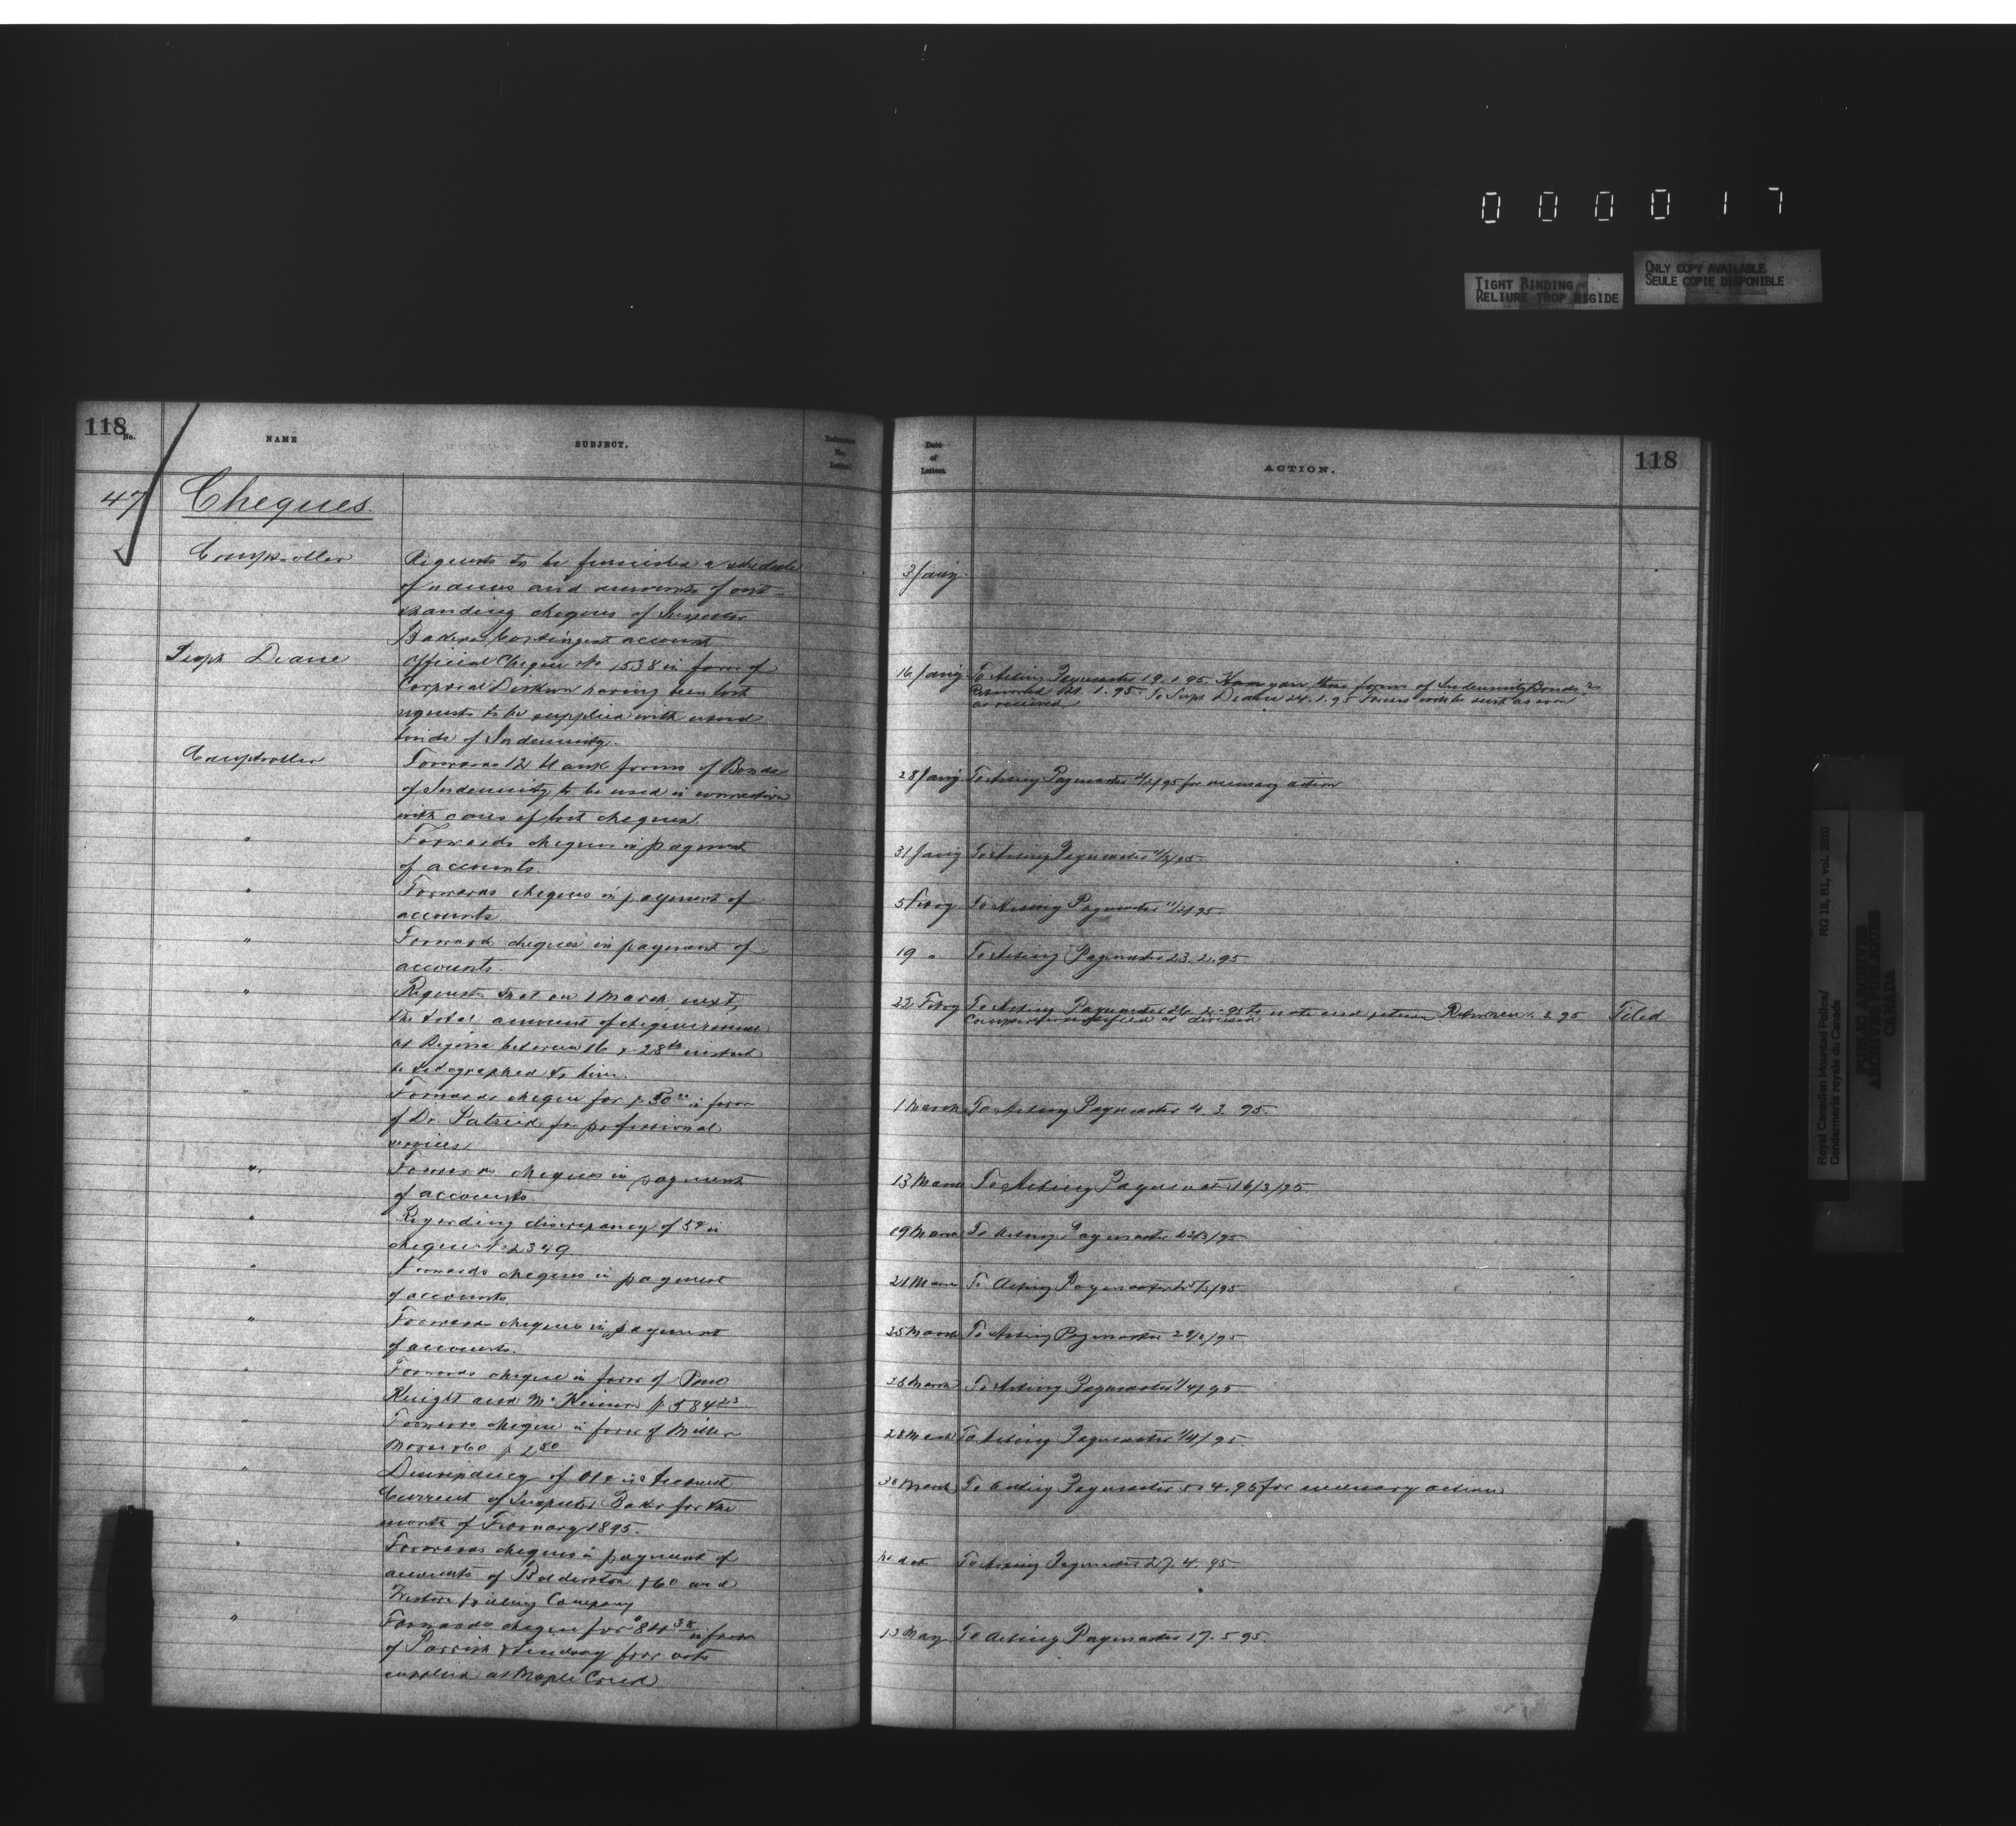 000017
TIGHT BINDING
RELIURE TROP RIGIDE
ONLY COPY AVAILABLE
SEULE COPIE DISPONIBLE
118
No.
NAME
SUBJECT.
Reference No. Letter
Date of Letters.
ACTION.
118
47 Cheques.
Comptroller
Requests to be furnished a schedule
of names and amounts of out-
standing cheques of Inspector
Bakers Contingent account
3 Jany.
Supt Deane
Official Cheque No 1538 in favor of
Corporal Dickson having been lost
requests to be supplied with usual
bonds of Indemnity.
16 Jany To Acting Paymaster 19.1.95. Have you these forms of Indemnity Bonds?
Returned 1.95. To Supt Deane 24.1.95 Forms will be sent as soon
as received
Comptroller
Forwards 12 blank forms of Bonds
of Indemnity to be used in connection
with cases of lost cheques.
28 Jany To Acting Paymaster /2/95 for necessary action
" Forwards cheques in payment
of accounts.
31 Jany To Acting Paymaster /2/95
" Forwards cheques in payment of
accounts.
5 Febry To Acting Paymaster 11/2/95.
" Forwards cheques in payment of
accounts.
19 " To Acting Paymaster 23.2.95
" Requests that on 1 March next,
the total amount of cheques issued
at Regina between 16 & 28th instant
be telegraphed to him.
22 Febry To Acting Paymaster 26.2.95 to note and return Returned 1.3.95 Filed
Comptroller notified as desired
" Forwards cheque for $50.00 in favor
of Dr. Patrick for professional
services
1 March To Acting Paymaster 4.3.95.
" Forwards cheques in payment
of accounts
13 March To Acting Paymaster 16/3/95.
" Regarding discrepancy of 5¢ in
cheque No 2349
19 March To Acting Paymaster 22/3/95
" Forwards cheques in payment
of accounts.
21 March To Acting Paymaster 25/3/95
" Forwards cheques in payment
of accounts.
25 March To Acting Paymaster 28/3/95
" Forwards cheque in favor of
Knight and McKinnon $584
28 March To Acting Paymaster 1/4/95
" Forwards cheque in favor of Miller
Morse & Co $2.80
28 March To Acting Paymaster 1/4/95.
" Discrepancy of 01¢ in Account
Current of Inspector Baker for the
month of February 1895.
30 March To Acting Paymaster 5.4.95 for necessary action
" Forwards cheques in payment of
accounts of Balderston & Co and
Western Milling Company
No date To Acting Paymaster 27.4.95
" Forwards cheque for $84.38 in favor
of Parrish & Lindsay for oats
supplied at Maple Creek
13 May To Acting Paymaster 17.5.95.
Royal Canadian Mounted Police/ RG 18, B1, vol. 2020
Gendarmerie royale du Canada
PUBLIC ARCHIVES
ARCHIVES PUBLIQUES
CANADA